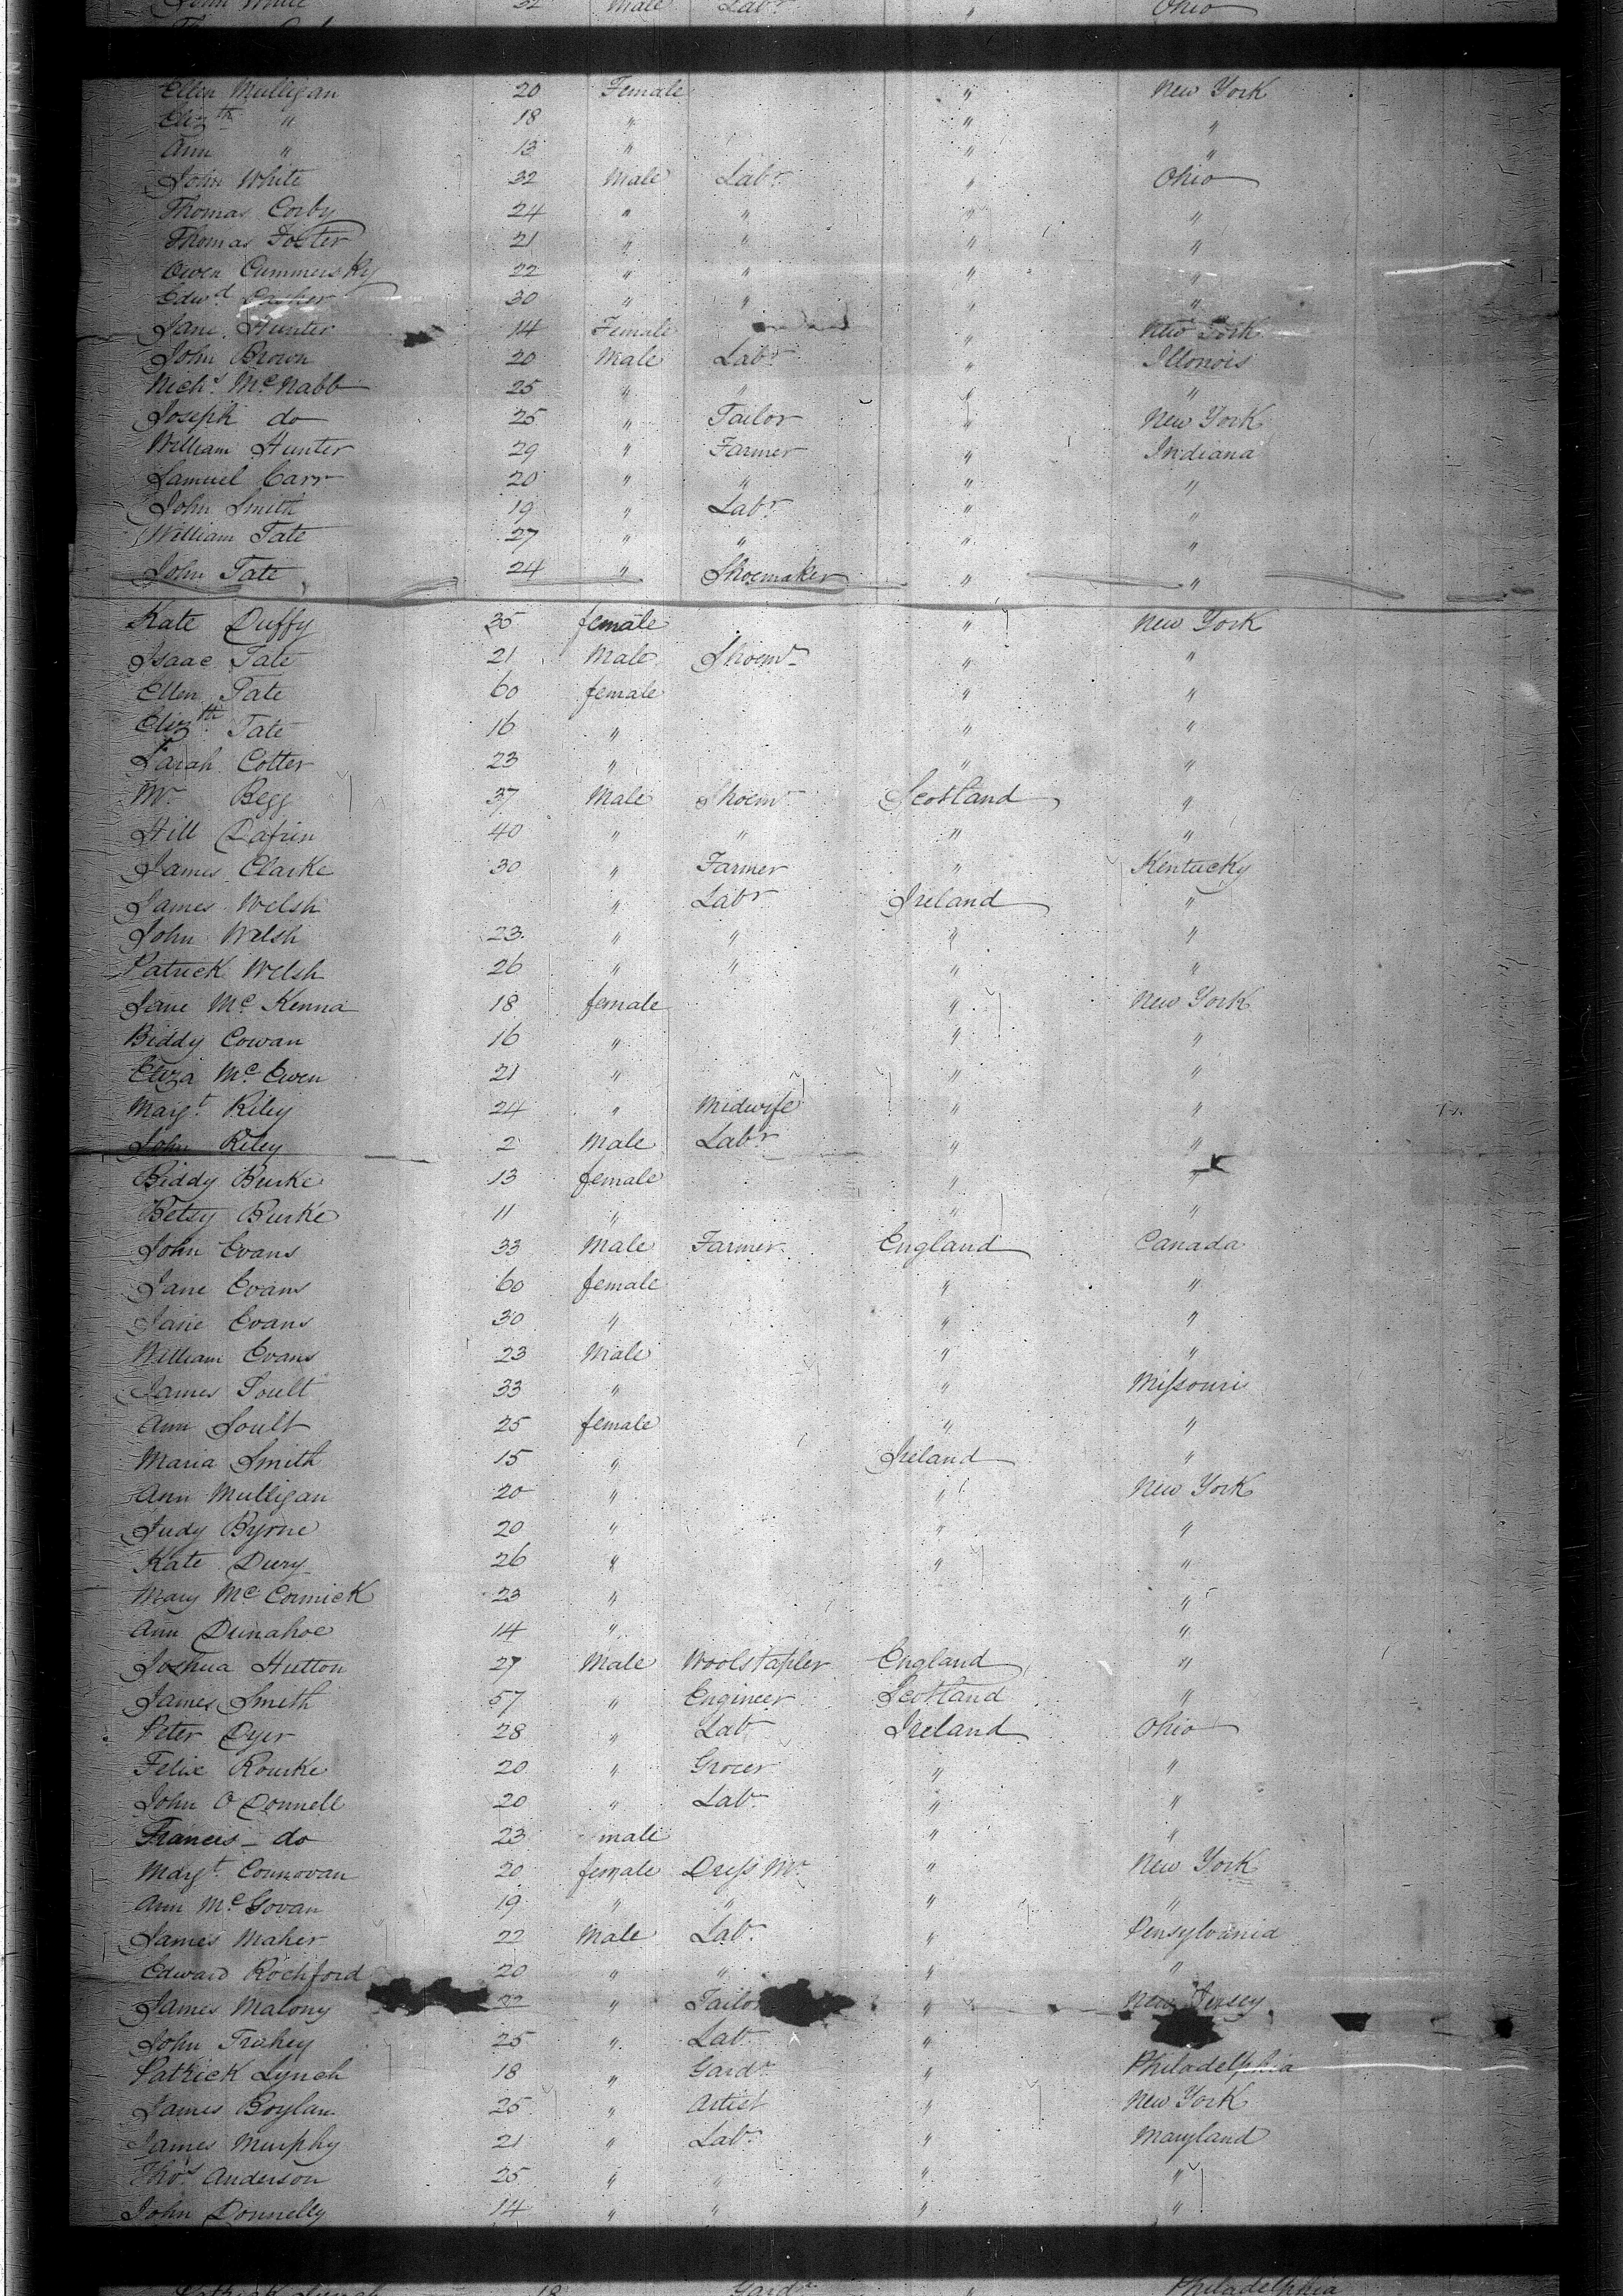 John White 32 Male Labr " Ohio
Ellen Mulligan 20 Female " New York
Elizth " 18 " " "
Ann " 13 " " "
John White 32 Male Labr " Ohio
Thomas Corby 24 " " " "
Thomas Foster 21 " " " "
Owen Cummersky 22 " " " "
Edwd 30 " " " "
Jane Hunter 14 Female " New York
John Brown 20 Male Labr " Illonois
Nichs McNabb 25 " " " "
Joseph do 25 " Tailor " New York
William Hunter 29 " Farmer " Indiana
Samuel Carr 20 " " " "
John Smith 19 " Labr " "
William Tate 27 " " " "
John Tate 24 " Shoemaker " "
Kate Duffy 35 female " New York
Isaac Tate 21 Male Shoemr " "
Ellen Tate 60 female " "
Elizth Tate 16 " " "
Sarah Cotter 23 " " "
Mr Begg 37 Male Shoemr Scotland "
Hill 40 " " " "
James Clarke 30 " Farmer " Kentucky
James Welsh " Labr Ireland "
John Welsh 23 " " " "
Patrick Welsh 26 " " " "
Jane McKenna 18 female " New York
Biddy Cowan 16 " " "
Eliza McEwen 21 " " "
Margt Riley 24 " Midwife " "
John Riley 2 Male Labr " "
Biddy Burke 13 female " "
Betsy Burke 11 " " "
John Evans 33 Male Farmer England Canada
Jane Evans 60 female " "
Jane Evans 30 " " "
William Evans 23 Male " "
James Soult 33 " " Missouri
Ann Soult 25 female " "
Maria Smith 15 " Ireland "
Ann Mulligan 20 " " New York
Judy Byrne 20 " " "
Kate Dury 26 " " "
Mary McCormick 23 " "
Ann Dunahoe 14 " "
Joshua Hutton 27 Male Woolstapler England "
James Smith 57 " Engineer Scotland "
Peter Dyer 28 " Lab Ireland Ohio
Felix Rourke 20 " Grocer " "
John O Donnell 20 " Lab " "
Francis do 23 male " "
Margt Connovan 20 female Dress Mr " New York
Ann McGovan 19 " " " "
James Maher 22 Male Lab " Pensylvania
Edward Rochford 20 " " " "
James Malony 22 " Tailor " New Jersey
John Trahey 25 " Lab "
Patrick Lynch 18 " Gardr " Philadelphia
James Boylan 25 " Artist " New York
James Murphy 21 " Labr " Maryland
Thos Anderson 25 " " " "
John Donnelly 14 " " " "
Patrick Lynch 18 Gardr " Philadelphia